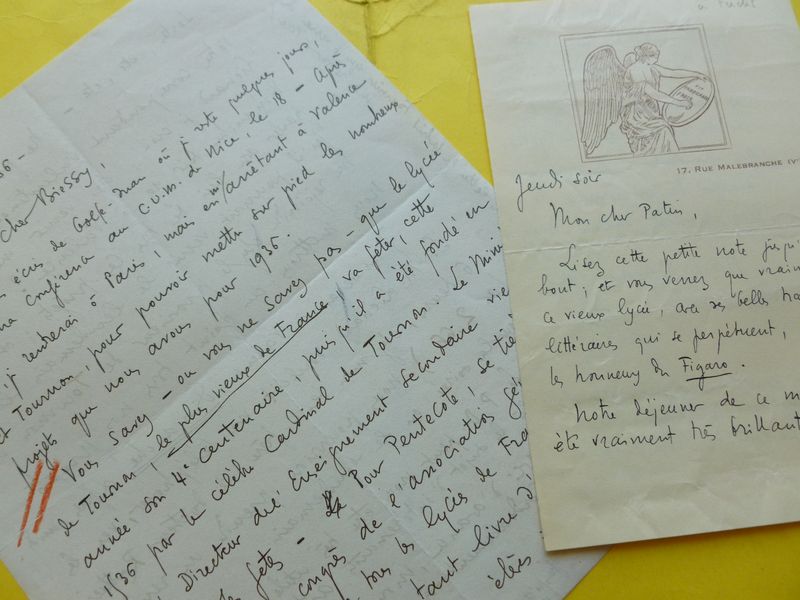 1936 -
Cher Biessy,
écris de Golfe-Juan où je reste quelques jours,
ma conférence au C.U.M. de Nice, le 18 - Après
je rentrerai à Paris, mais en m'arrêtant à Valence
et Tournon, pour pouvoir mettre sur pied les nombreux
projets que nous avons pour 1936.
Vous savez - ou vous ne savez pas - que le lycée
de Tournon, le plus vieux de France, va fêter, cette
année son 4e centenaire, puisqu'il a été fondé en
1536 par le célèbre Cardinal de Tournon. Le Mini
Directeur de l'Enseignement secondaire
fêtes - Pour Pentecôte, se tie
congrès de l'association
tous les lycées de Fra
tant livre d'
17, RUE MALEBRANCHE (V
Jeudi soir
Mon cher Patin,
Lisez cette petite note jusqu'
bout ; et vous verrez que vraim
ce vieux lycée, avec ses belles tra
littéraires qui se perpétuent,
les honneurs du Figaro.
Notre déjeuner de ce m
été vraiment très brillant